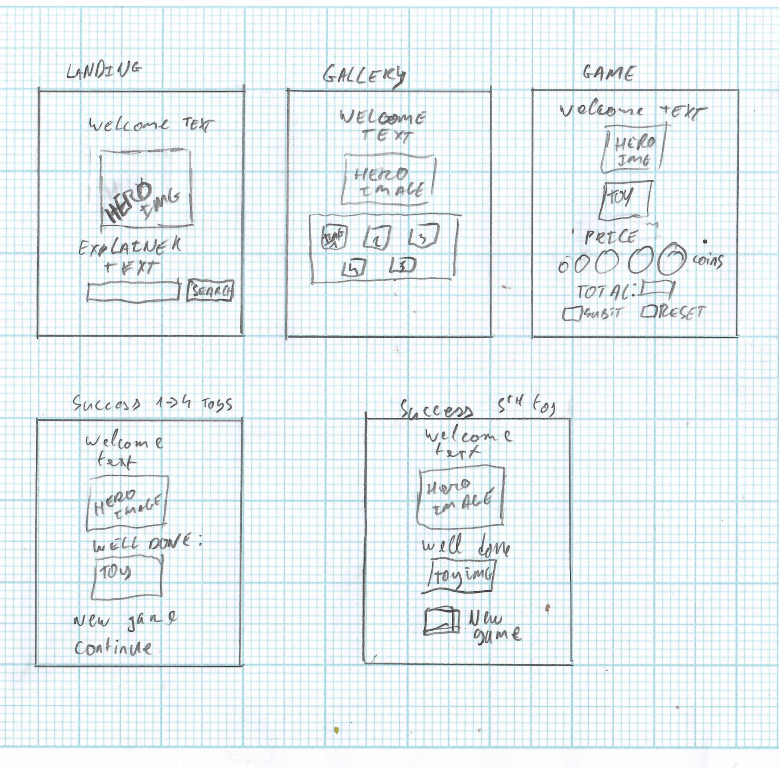 LANDING
welcome TEXT
HERO
IMG
EXPLAINER
TEXT
SEARCH
GALLERY
WELCOME
TEXT
HERO
IMAGE
2
3
4
5
GAME
welcome TEXT
HERO
IMG
TOY
PRICE
coins
TOTAL:
SUBIT RESET
Success 1->4 TOYS
welcome
text
HERO
IMAGE
WELL DONE:
TOY
New game
Continue
Success 5TH toy
welcome
text
HERO
IMAGE
well done
toy img
New
game